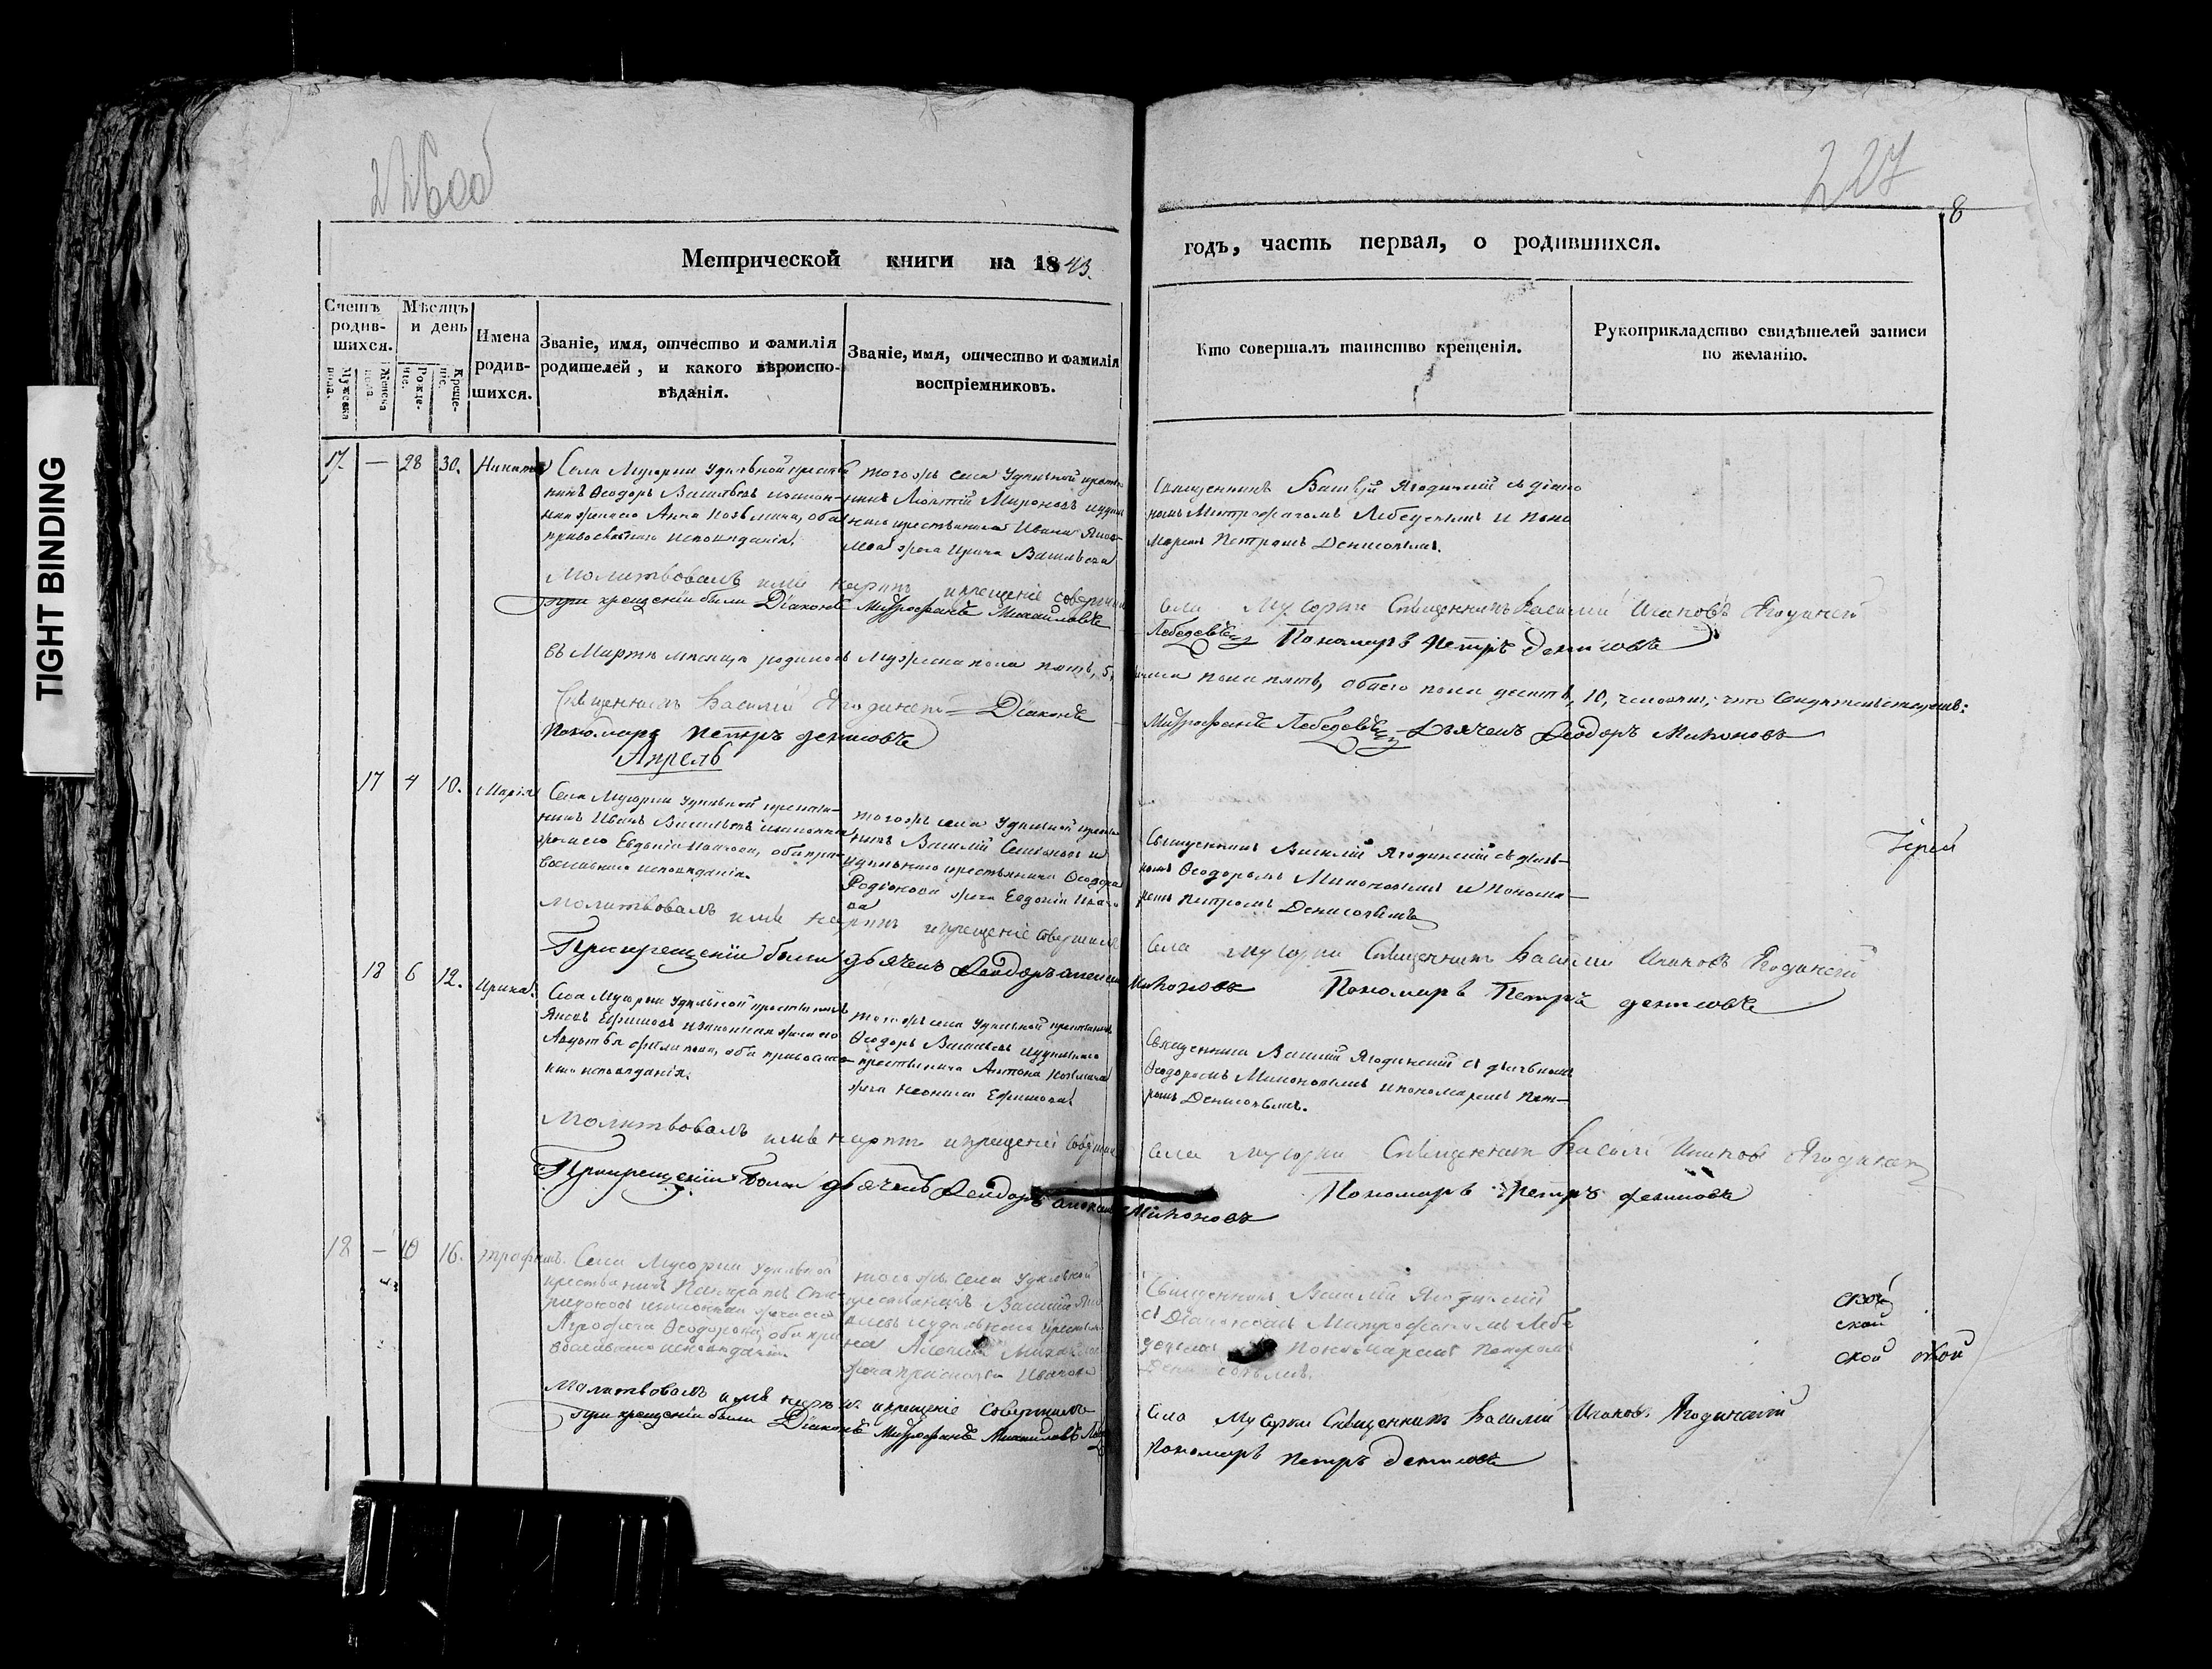 226 об
227
8
Метрической книги на 1843.
годъ, часть первая, о родившихся.
Счетъ родив-
шихся.
Мужеска пола.
Женска пола.
Мѣсяцъ и день
Рожде-
ніе.
Креще-
ніе.
Имена
родив-
шихся.
Званіе, имя, отчество и фамилія
родителей, и какого вѣроиспо-
вѣданія.
Званіе, имя, отчество и фамилія
воспріемниковъ.
Кто совершалъ таинство крещенія.
Рукоприкладство свидѣтелей записи
по желанію.
17. — 28 30. Никита
Села Мусорки удѣльной крестья
нинъ Ѳеодоръ Васильевъ изакон-
ная жена его Анна Козьмина, оба
православнаго исповѣданія.
тогожъ села Удѣльной крестья
нинъ Мироновъ иудѣл
наго крестьянина Ивана
жена Ирина Васильева
Священникъ Василій Ягодинскій съ діако
номъ Митрофаномъ Лебедевымъ и поно
маремъ Петромъ Денисовымъ.
Молитвовалъ имя нарекъ икрещеніе совершилъ
села Мусорки Священникъ Василій Исаковъ Ягодинскій
При крещеніи были Діаконъ Митрофанъ Михайловъ
Лебедевъ Пономарь Петръ Денисовъ
въ Мартѣ мѣсяцѣ родилось Мужеска пола пять, 5,
пола пять, обоего пола десять, 10, человѣкъ; что свидѣтельствуемъ:
Священникъ Василій Ягодинскій Діаконъ
Митрофанъ Лебедевъ Дьячекъ Ѳеодоръ Миноновъ
Пономарь Петръ Денисовъ
Апрель
17 4 10. Марія
Села Мусорки удѣльной крестья-
нинъ Иванъ Васильевъ изаконная
жена его Евдокія оба пра-
вославнаго исповѣданія.
тогожъ села Удѣльной крестья
нинъ Василій Семеновъ и
удѣльнаго крестьянина Ѳеодора
Родіонова жена Евдокія Ивано
ва
Священникъ Василій Ягодинскій съ дьяч-
комъ Ѳеодоромъ Миноновымъ и понома-
ремъ Петромъ Денисовымъ
Іерей
Молитвовалъ имя нарекъ икрещеніе совершилъ
села Мусорки Священникъ Василій Исаковъ Ягодинскій
При крещеніи были дьячекъ Ѳеодоръ
Миноновъ Пономарь Петръ Денисовъ
18 6 12. Ирина.
Села Мусорки Удѣльной крестьянинъ
Яковъ Ефимовъ изаконная жена его
Филипова, оба православ-
наго исповѣданія.
тогожъ села Удѣльной крестьянинъ
Ѳеодоръ Васильевъ иудѣльнаго
крестьянина Антона Козьмина
жена Ефимова
Священникъ Василій Ягодинскій съ дьячкомъ
Ѳеодоромъ Миноновымъ ипономаремъ Пет-
ромъ Денисовымъ.
Молитвовалъ имя нарекъ икрещеніе совершилъ
села Мусорки Священникъ Василій Исаковъ Ягодинскій
При крещеніи были дьячекъ Ѳеодоръ
Миноновъ
Пономарь Петръ Денисовъ
18 — 10 16. Трофимъ.
Села Мусорки Удѣльной
крестьянинъ Панкратъ Спи-
ридоновъ изаконная жена его
Агрофена Ѳеодорова, оба пра
вославнаго исповѣданія.
тогожъ села Удѣльной
крестьянинъ Василій
иудѣльнаго крестьяни
на
жена Иванова
Священникъ Василій Ягодинскій
съ Діакономъ Митрофаномъ Лебе
девымъ Пономаремъ Петромъ
Денисовымъ.
ской
ской
Молитвовалъ имя нарекъ икрещеніе совершилъ
села Мусорки Священникъ Василій Исаковъ Ягодинскій
При крещеніи были Діаконъ Митрофанъ Михайловъ
Пономарь Петръ Денисовъ
TIGHT BINDING